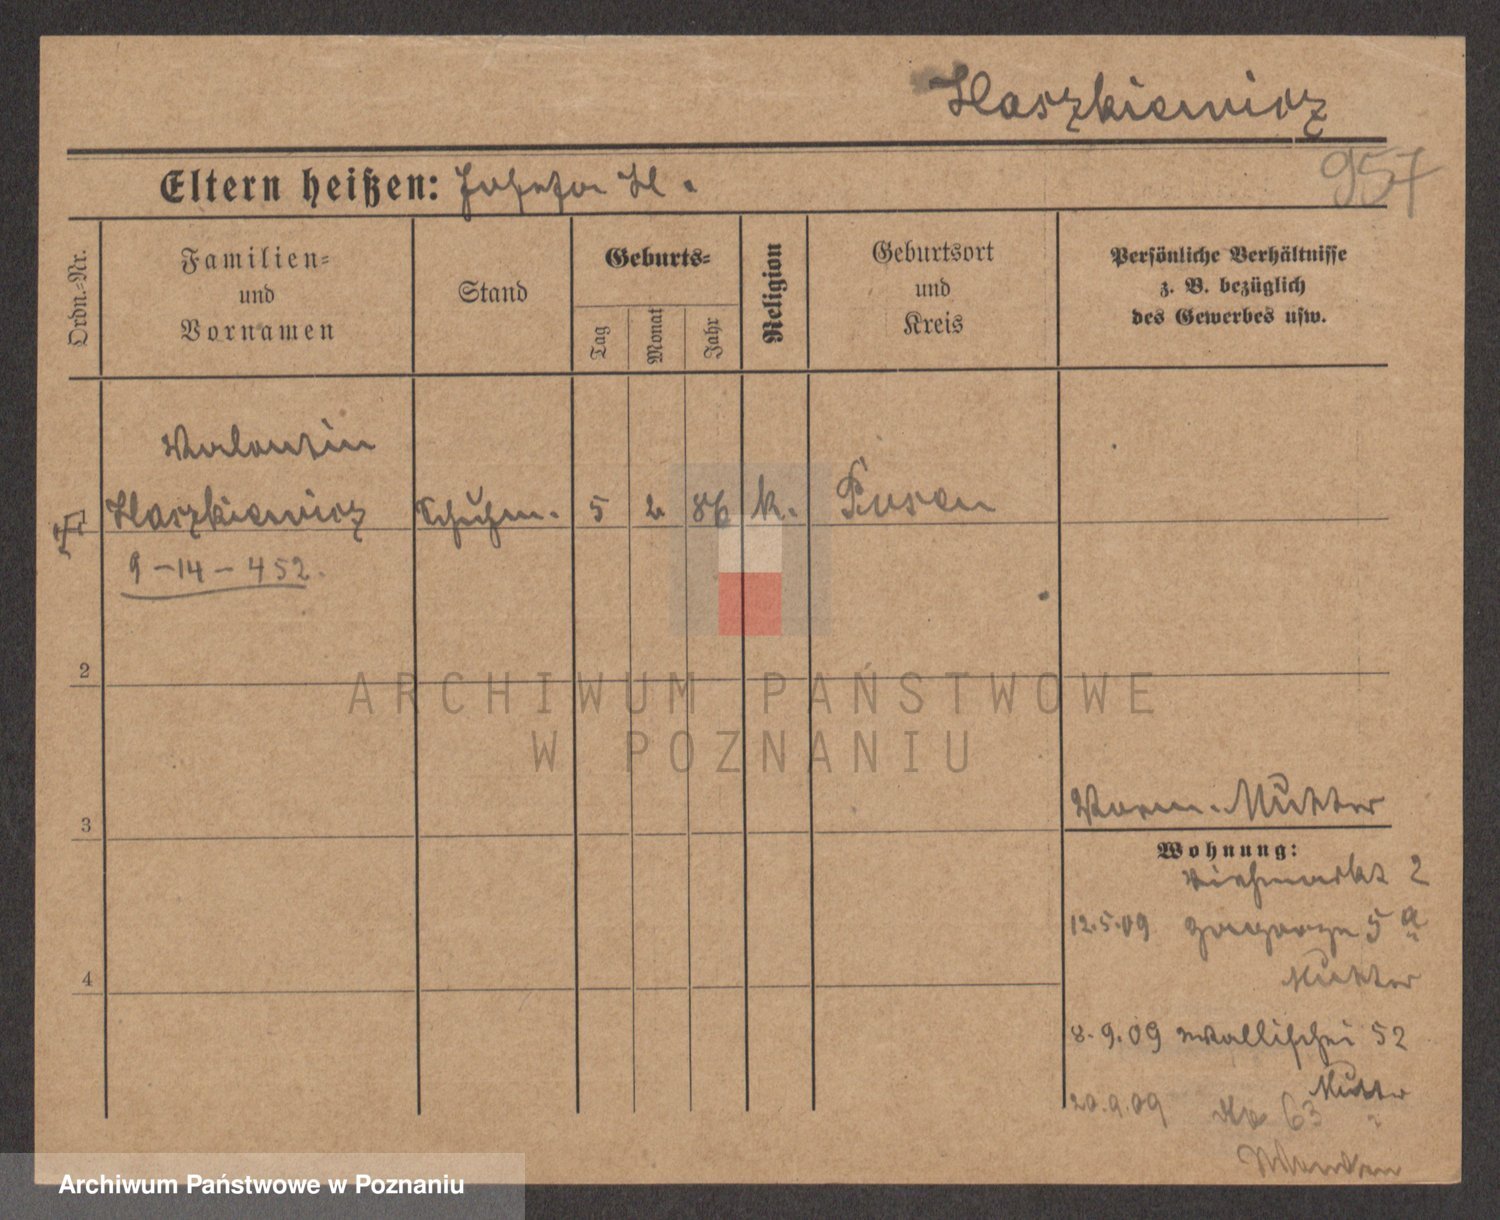 Haszkiewicz
957
Eltern heißen: Josefa H.
Ordn.=Nr.
Familien=
und
Vornamen
Stand
Geburts=
Tag
Monat
Jahr
Religion
Geburtsort
und
Kreis
Persönliche Verhältnisse
z. B. bezüglich
des Gewerbes usw.
Valentin
Haszkiewicz Schuhm. 5 2 86 k. Posen
9-14-452.
2
ARCHIWUM PAŃSTWOWE
W POZNANIU
3
Mutter
Wohnung:
Viehmarkt 2
12.5.09 5a
Mutter
4
8.9.09 Wallischei 52
Mutter
20.9.09 do 63
Archiwum Państwowe w Poznaniu